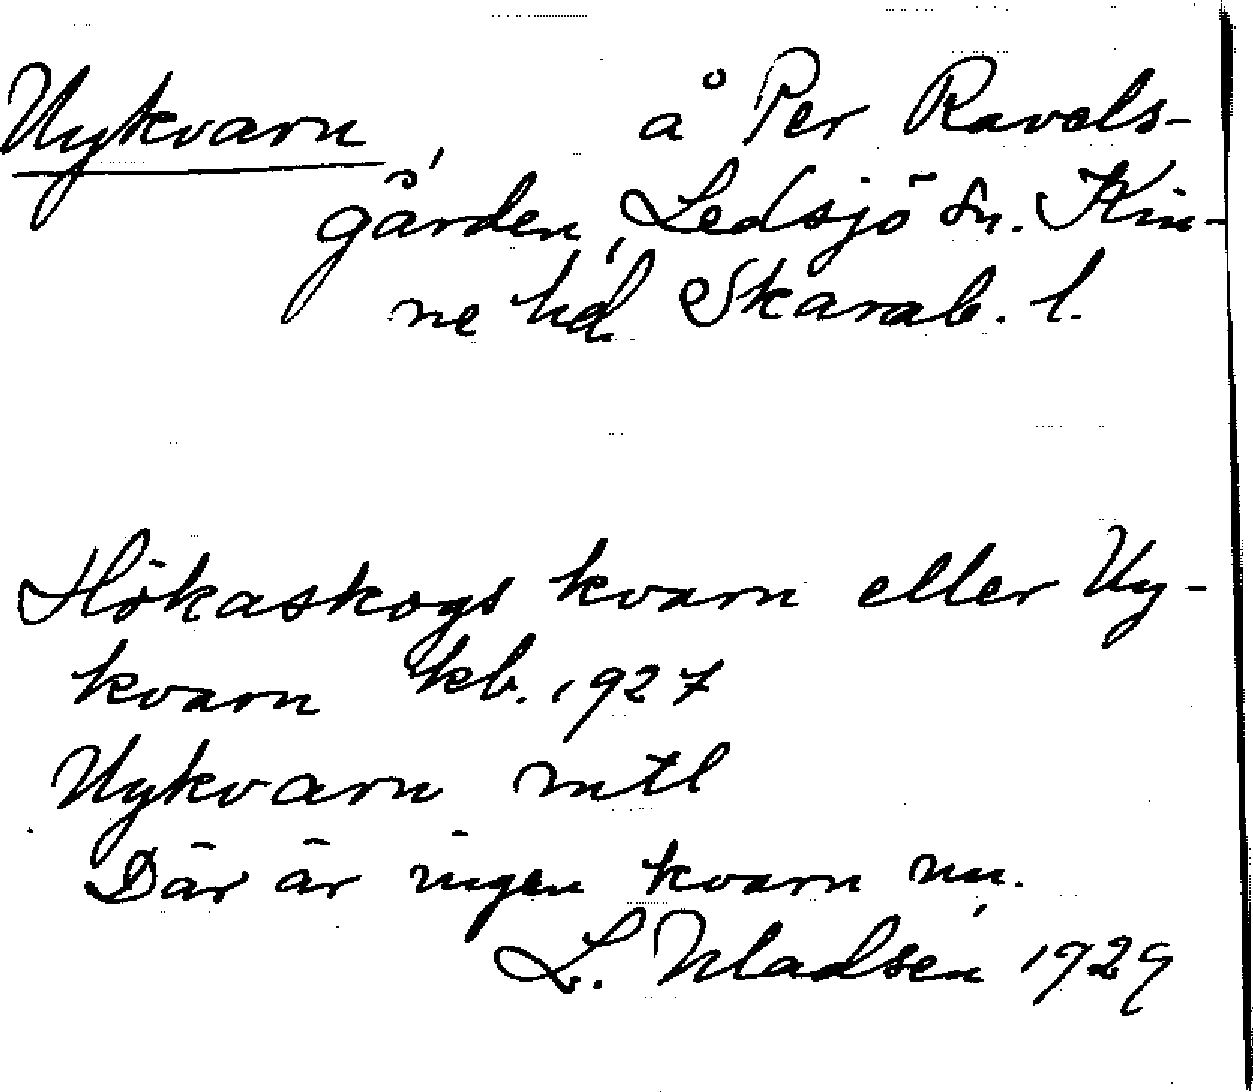 Nykvarn, å Per Ravels-
gården, Ledsjö sn. Kin-
ne hd Skarab. l.
Hökaskogs kvarn eller Ny-
kvarn kb. 1927
Nykvarn mtl
Där är ingen kvarn nu.
L. Uladsén 1929